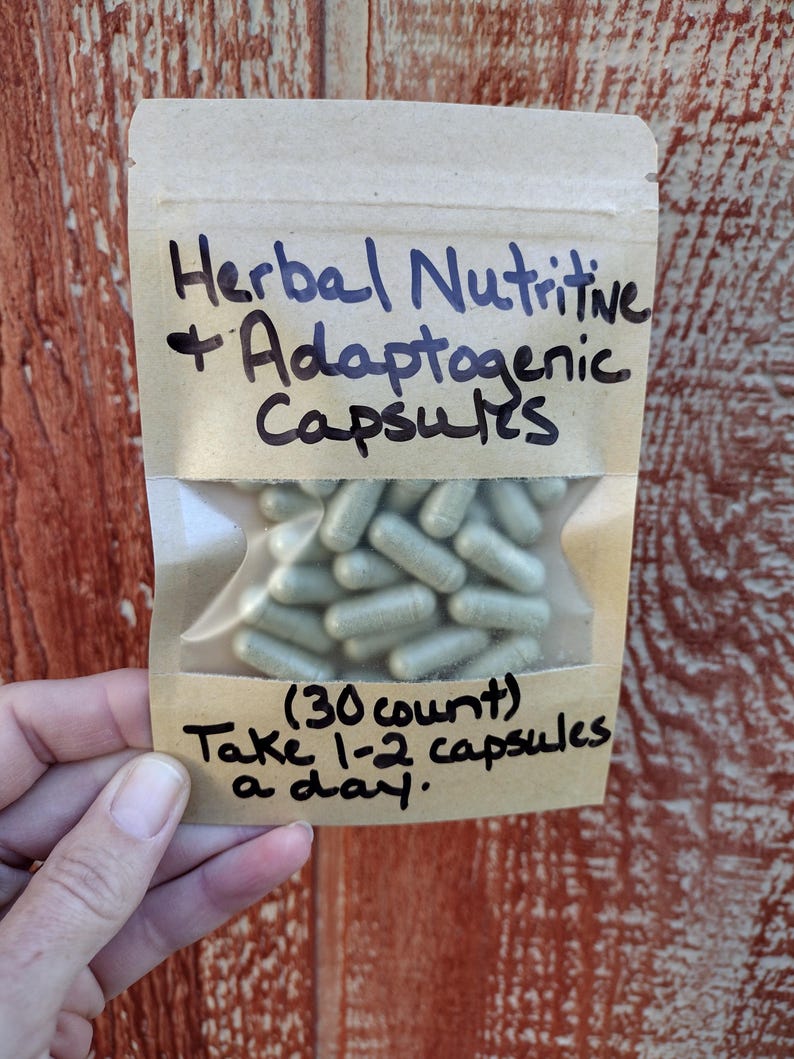 Herbal Nutritive
+ Adaptogenic
Capsules
(30 count)
Take 1-2 capsules
a day.